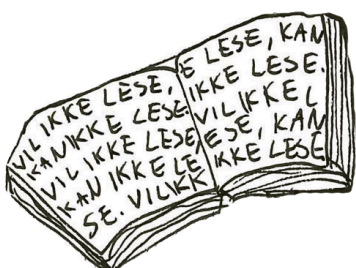 VIL IKKE LESE,
KAN IKKE LESE.
VIL IKKE LESE,
KAN IKKE LE
SE. VIL IKK
E LESE, KAN
IKKE LESE.
VIL IKKE L
ESE, KAN
IKKE LESE